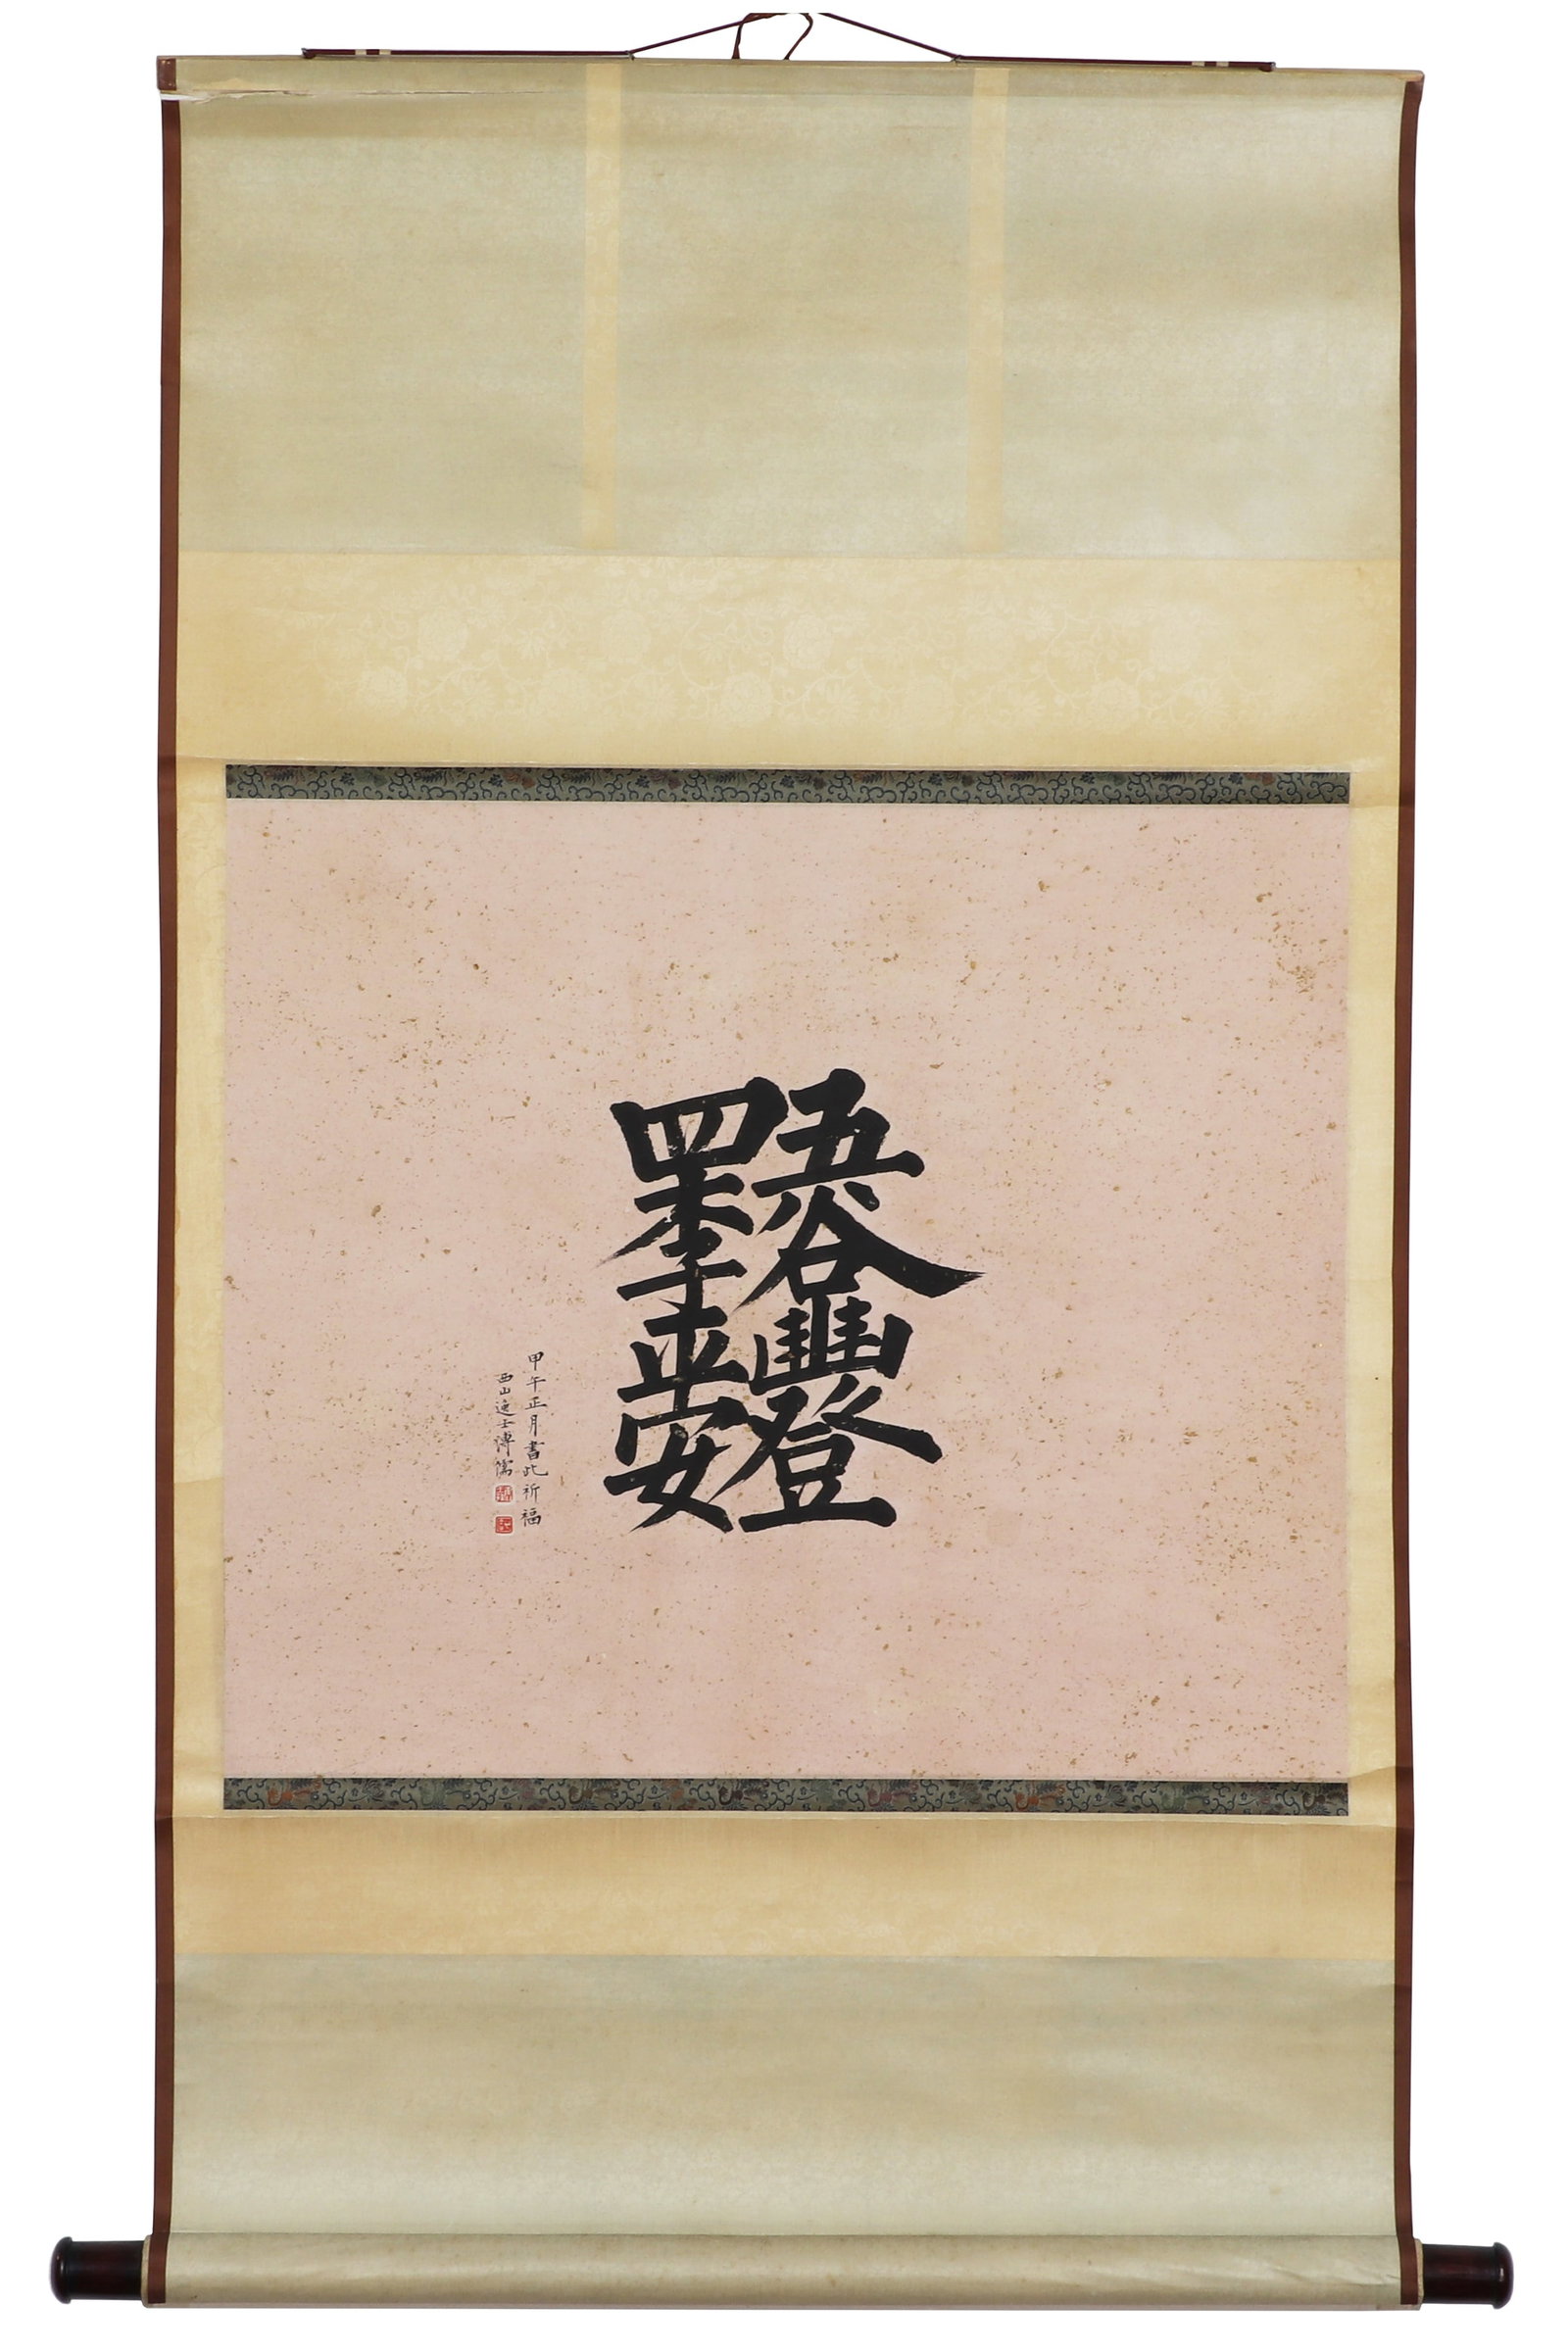 五谷豐登
四季平安
甲午正月書此祈福
西山逸士溥儒